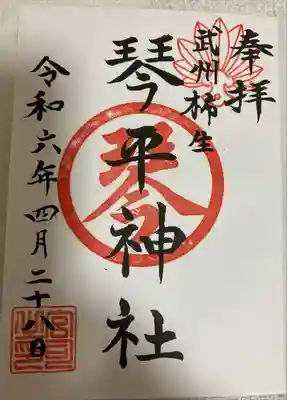 奉拝
武州柿生
琴平神社
令和六年四月二十八日